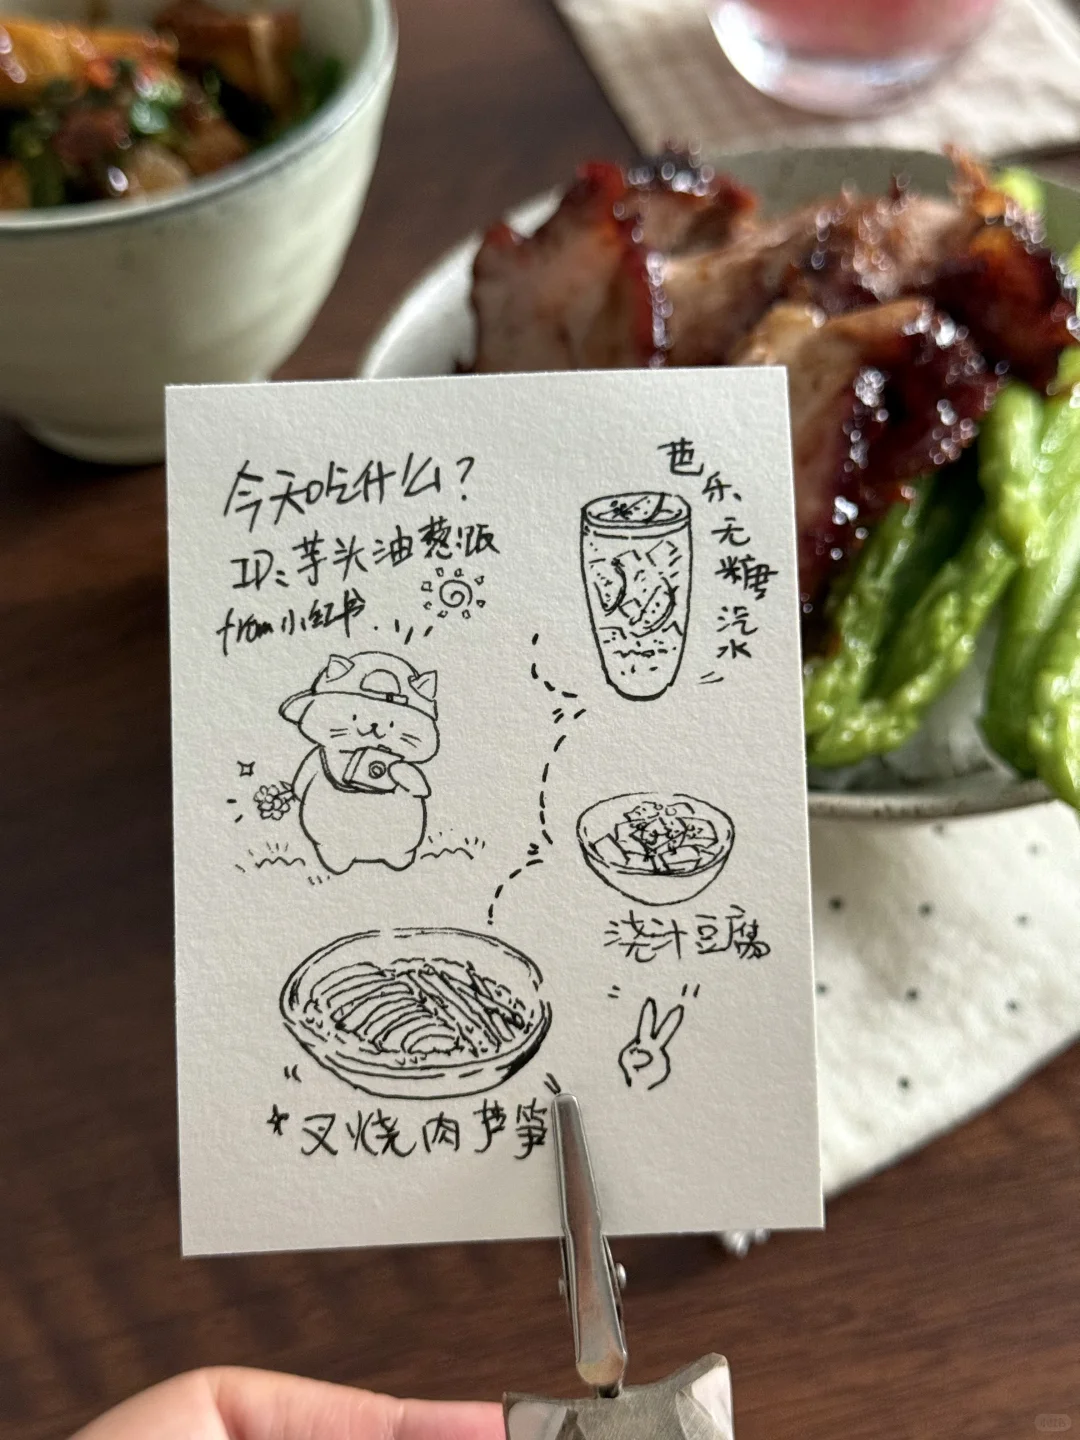 今天吃什么?
ID:芋头油葱饭
from 小红书
芭乐无糖汽水
浇汁豆腐
叉烧肉芦笋